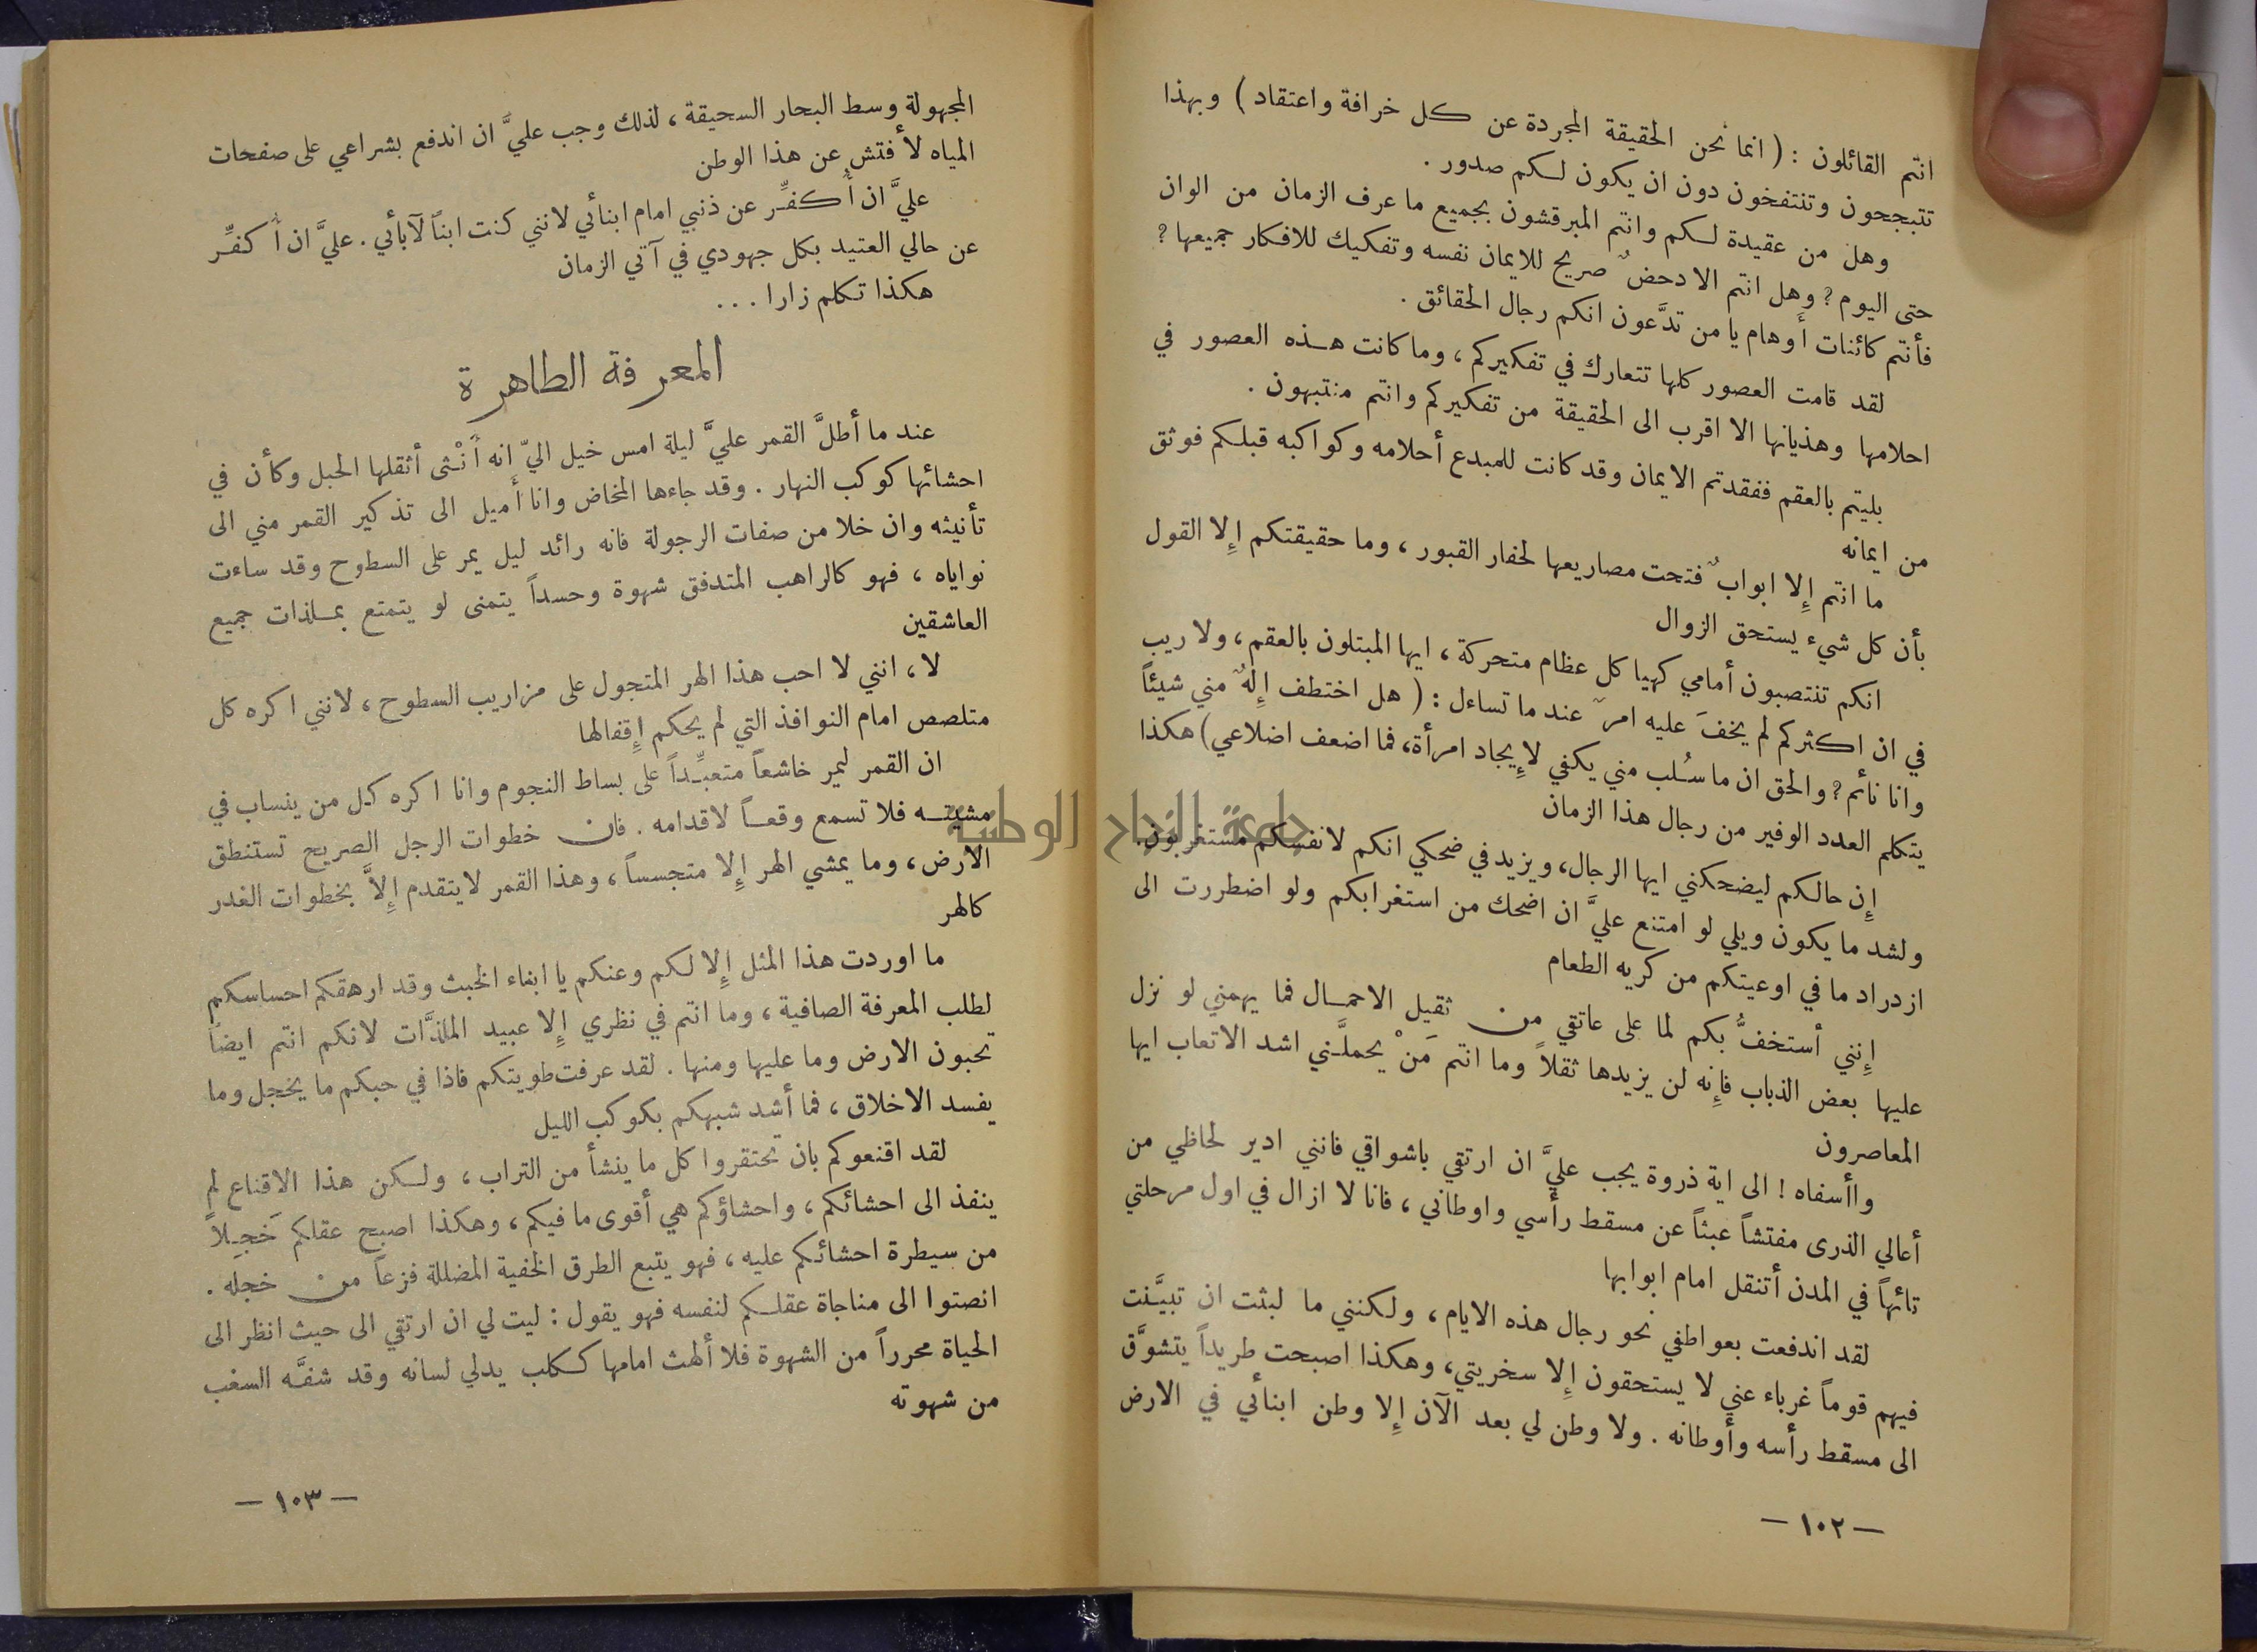 انتم القائلون : ( انما نحن الحقيقة المجردة عن كل خرافة واعتقاد ) وبهذا
تتبجحون وتنتفخون دون ان يكون لكم صدور .
وهل من عقيدة لكم وانتم المبرقشون بجميع ما عرف الزمان من الوان
حتى اليوم ? وهل انتم الا دحضٌ صريح للايمان نفسه وتفكيك للافكار جميعها ?
فأنتم كائنات أوهام يا من تدَّعون انكم رجال الحقائق .
لقد قامت العصور كلها تتعارك في تفكيركم ، وما كانت هذه العصور في
احلامها وهذيانها الا اقرب الى الحقيقة من تفكيركم وانتم منتبهون .
بليتم بالعقم ففقدتم الايمان وقد كانت للمبدع أحلامه وكواكبه قبلكم فوثق
من ايمانه
ما انتم إلا ابوابٌ فتحت مصاريعها لحفار القبور ، وما حقيقتكم إلا القول
بأن كل شيء يستحق الزوال
انكم تنتصبون أمامي كهياكل عظام متحركة ، ايها المبتلون بالعقم ، ولا ريب
في ان اكثركم لم يخفَ عليه امرٌ عند ما تساءل : ( هل اختطف إلهٌ مني شيئاً
وانا نائم ? والحق ان ما سُلب مني يكفي لإيجاد امرأة، فما اضعف اضلاعي ) هكذا
يتكلم العدد الوفير من رجال هذا الزمان
إن حالكم ليضحكني ايها الرجال، ويزيد في ضحكي انكم لانفسكم مستغربون.
ولشد ما يكون ويلي لو امتنع عليَّ ان اضحك من استغرابكم ولو اضطررت الى
ازدراد ما في اوعيتكم من كريه الطعام
إنني أستخفُّ بكم لما على عاتقي من ثقيل الاحمال فما يهمني لو نزل
عليها بعض الذباب فإنه لن يزيدها ثقلاً وما انتم مَنْ يحملَّني اشد الاتعاب ايها
المعاصرون
واأسفاه ! الى اية ذروة يجب عليَّ ان ارتقي باشواقي فانني ادير لحاظي من
أعالي الذرى مفتشاً عبثاً عن مسقط رأسي واوطاني ، فانا لا ازال في اول مرحلتي
تائهاً في المدن أتنقل امام ابوابها
لقد اندفعت بعواطفي نحو رجال هذه الايام ، ولكنني ما لبثت ان تبيَّنت
فيهم قوماً غرباء عني لا يستحقون إلا سخريتي، وهكذا اصبحت طريداً يتشوَّق
الى مسقط رأسه وأوطانه . ولا وطن لي بعد الآن إلا وطن ابنائي في الارض
— ١٠٢ —
المجهولة وسط البحار السحيقة ، لذلك وجب عليَّ ان اندفع بشراعي على صفحات
المياه لأفتش عن هذا الوطن
عليَّ ان أكفِّر عن ذنبي امام ابنائي لانني كنت ابناً لآبائي . عليَّ ان أكفِّر
عن حالي العتيد بكل جهودي في آتي الزمان
هكذا تكلم زارا ...
المعرفة الطاهرة
عند ما أطلَّ القمر عليَّ ليلة امس خيل اليّ انه أنْثى أثقلها الحبل وكأن في
احشائها كوكب النهار . وقد جاءها المخاض وانا أميل الى تذكير القمر مني الى
تأنيثه وان خلا من صفات الرجولة فانه رائد ليل يمر على السطوح وقد ساءت
نواياه ، فهو كالراهب المتدفق شهوة وحسداً يتمنى لو يتمتع بملذات جميع
العاشقين
لا ، انني لا احب هذا الهر المتجول على مزاريب السطوح ، لانني اكره كل
متلصص امام النوافذ التي لم يحكم إقفالها
ان القمر ليمر خاشعاً متعبِّداً على بساط النجوم وانا اكره كل من ينساب في
مشيته فلا تسمع وقعاً لاقدامه . فان خطوات الرجل الصريح تستنطق
الارض ، وما يمشي الهر إلا متجسساً ، وهذا القمر لا يتقدم إلاَّ بخطوات الغدر
كالهر
ما اوردت هذا المثل إلا لكم وعنكم يا ابناء الخبث وقد ارهقكم احساسكم
لطلب المعرفة الصافية ، وما انتم في نظري إلا عبيد الملذَّات لانكم انتم ايضاً
تحبون الارض وما عليها ومنها . لقد عرفت طويتكم فاذا في حبكم ما يخجل وما
يفسد الاخلاق ، فما أشد شبهكم بكوكب الليل
لقد اقنعوكم بان تحتقروا كل ما ينشأ من التراب ، ولكن هذا الاقناع لم
ينفذ الى احشائكم ، واحشاؤكم هي أقوى ما فيكم ، وهكذا اصبح عقلكم خَجِلاً
من سيطرة احشائكم عليه ، فهو يتبع الطرق الخفية المضللة فزعاً من خجله .
انصتوا الى مناجاة عقلكم لنفسه فهو يقول : ليت لي ان ارتقي الى حيث انظر الى
الحياة محرراً من الشهوة فلا ألهث امامها ككلب يدلي لسانه وقد شفَّه السغب
من شهوته
— ١٠٣ —
جامعة النجاح الوطنية